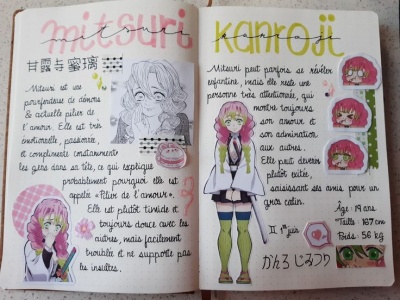 mitsuri
mitsuri
甘露寺蜜璃
Mitsuri est une
pourfendeuse de démons
& actuelle pilier de
l'amour. Elle est très
émotionnelle, passionnée,
et complimente constamment
les gens dans sa tête, ce qui explique
probablement pourquoi elle est
appelée "Pilier de l'amour".
Elle est plutôt timide et
toujours douce avec les
autres, mais facilement
troublée et ne supporte pas
les insultes.
kanroji
kanroji
Mitsuri peut parfois se révéler
enfantine, mais elle reste une
personne très attentionnée, qui
montre toujours
son amour et
son admiration
aux autres.
Elle peut devenir
plutôt excitée,
saisissant ses amis pour un
gros calin.
Âge : 19 ans
Taille : 167 cm
Poids : 56 kg
1er juin
かんろじみつり